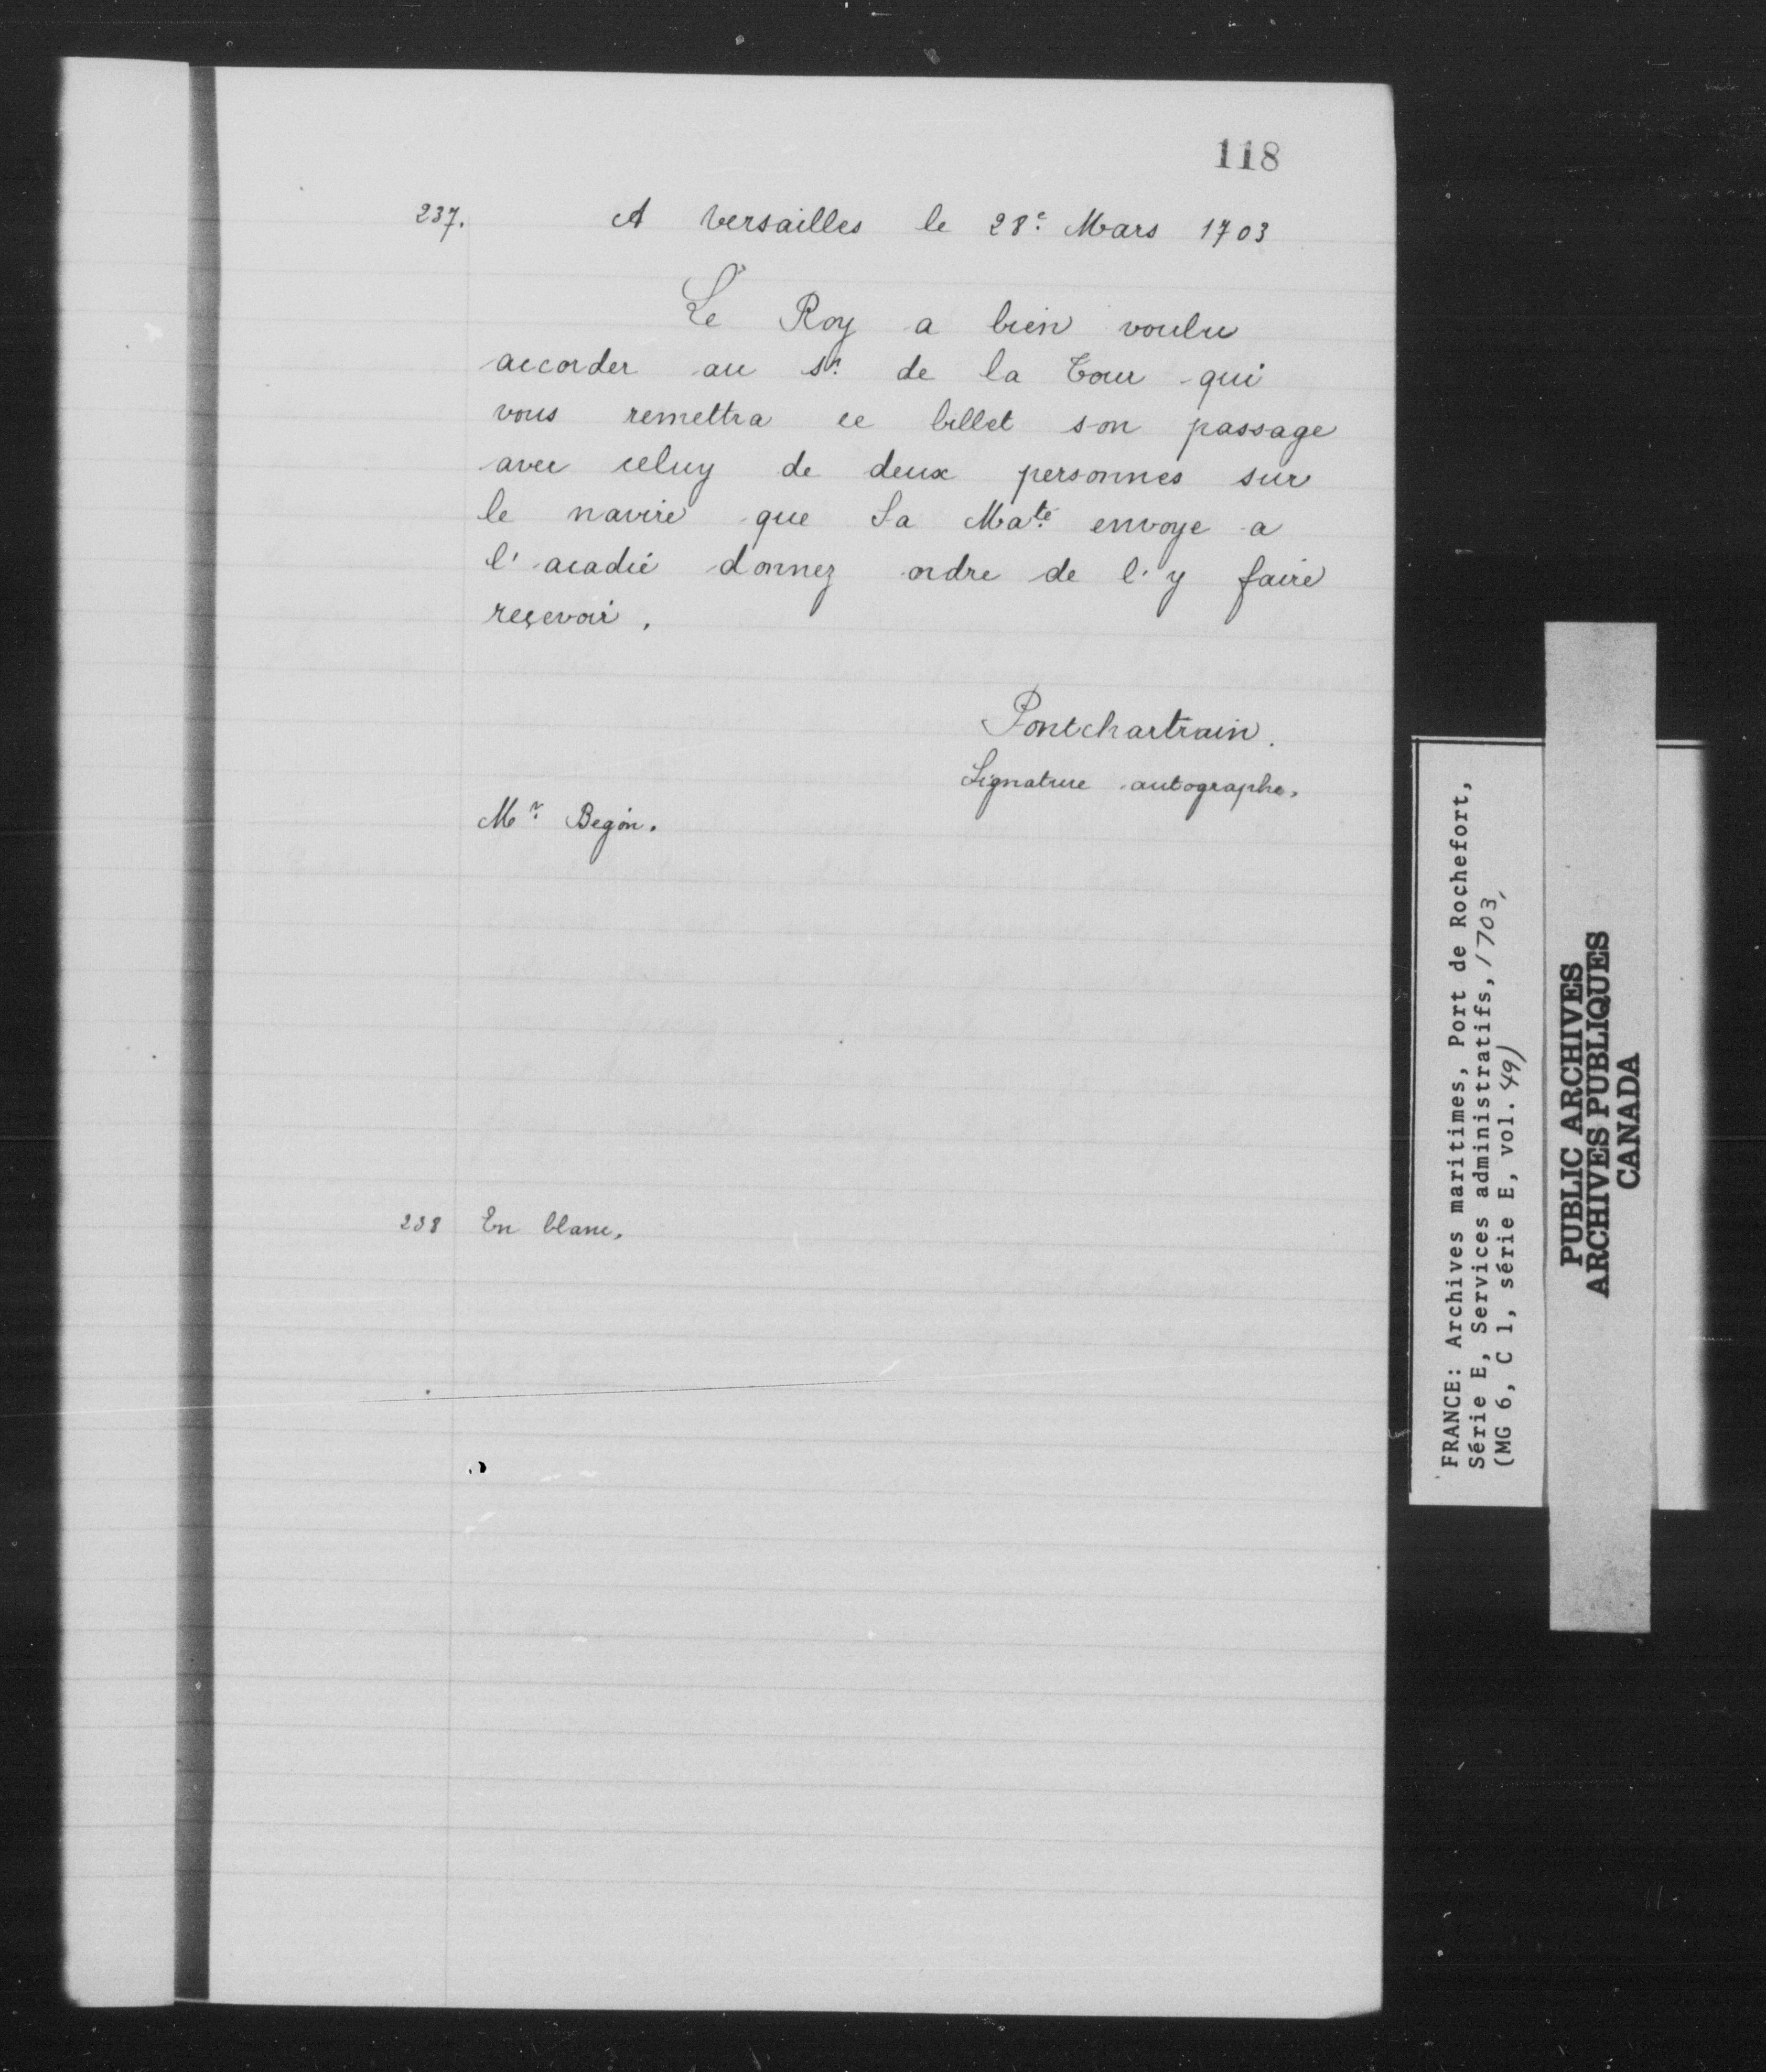 118
237. A Versailles le 28e Mars 1703
Le Roy a bien voulu
accorder au sr. de la Tour qui
vous remettra ce billet son passage
avec celuy de deux personnes sur
le navire que Sa Maté envoye a
l'acadie donnez ordre de l'y faire
reçevoir.
Pontchartrain.
Signature autographe.
Mr. Begon.
238 En blanc.
FRANCE: Archives maritimes, Port de Rochefort,
Série E, Services administratifs, 1703,
(MG 6, C 1, série E, vol. 49)
PUBLIC ARCHIVES
ARCHIVES PUBLIQUES
CANADA